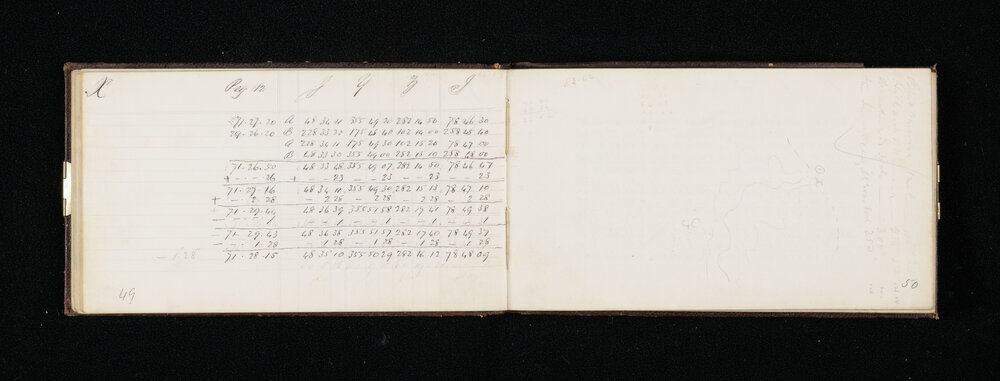 X Peg 12 J Y Z J
71.27.20 A 48 34 11 355 49 20 282 14 50 78 46 30
29.26.20 B 228 33 20 175 48 40 102 14 00 258 45 40
A 228 34 11 175 49 30 102 15 20 78 47 00
B 48 33 30 355 49 00 282 15 10 258 48 00
71.26.50 48 33 48 355 49 07 282 14 50 78 46 47
+ - - 26 + - - 23 - - 23 - - 23 - - 23
71.27.16 48 34 11 355 49 30 282 15 13 78 47 10
+ - 2.28 - 2 28 - 2 28 - 2 28 - 2 28
71.29.44 48 36 39 355 51 58 282 17 41 78 49 38
- - - 1 - - 1 - - 1 - - 1 - - 1
71.29.43 48 36 38 355 51 57 282 17 40 78 49 37
- - 1.28 - 1 28 - 1 28 - 1 28 - 1 28
- 1.28 71.28.15 48 35 10 355 50 29 282 16 12 78 48 09
49
50